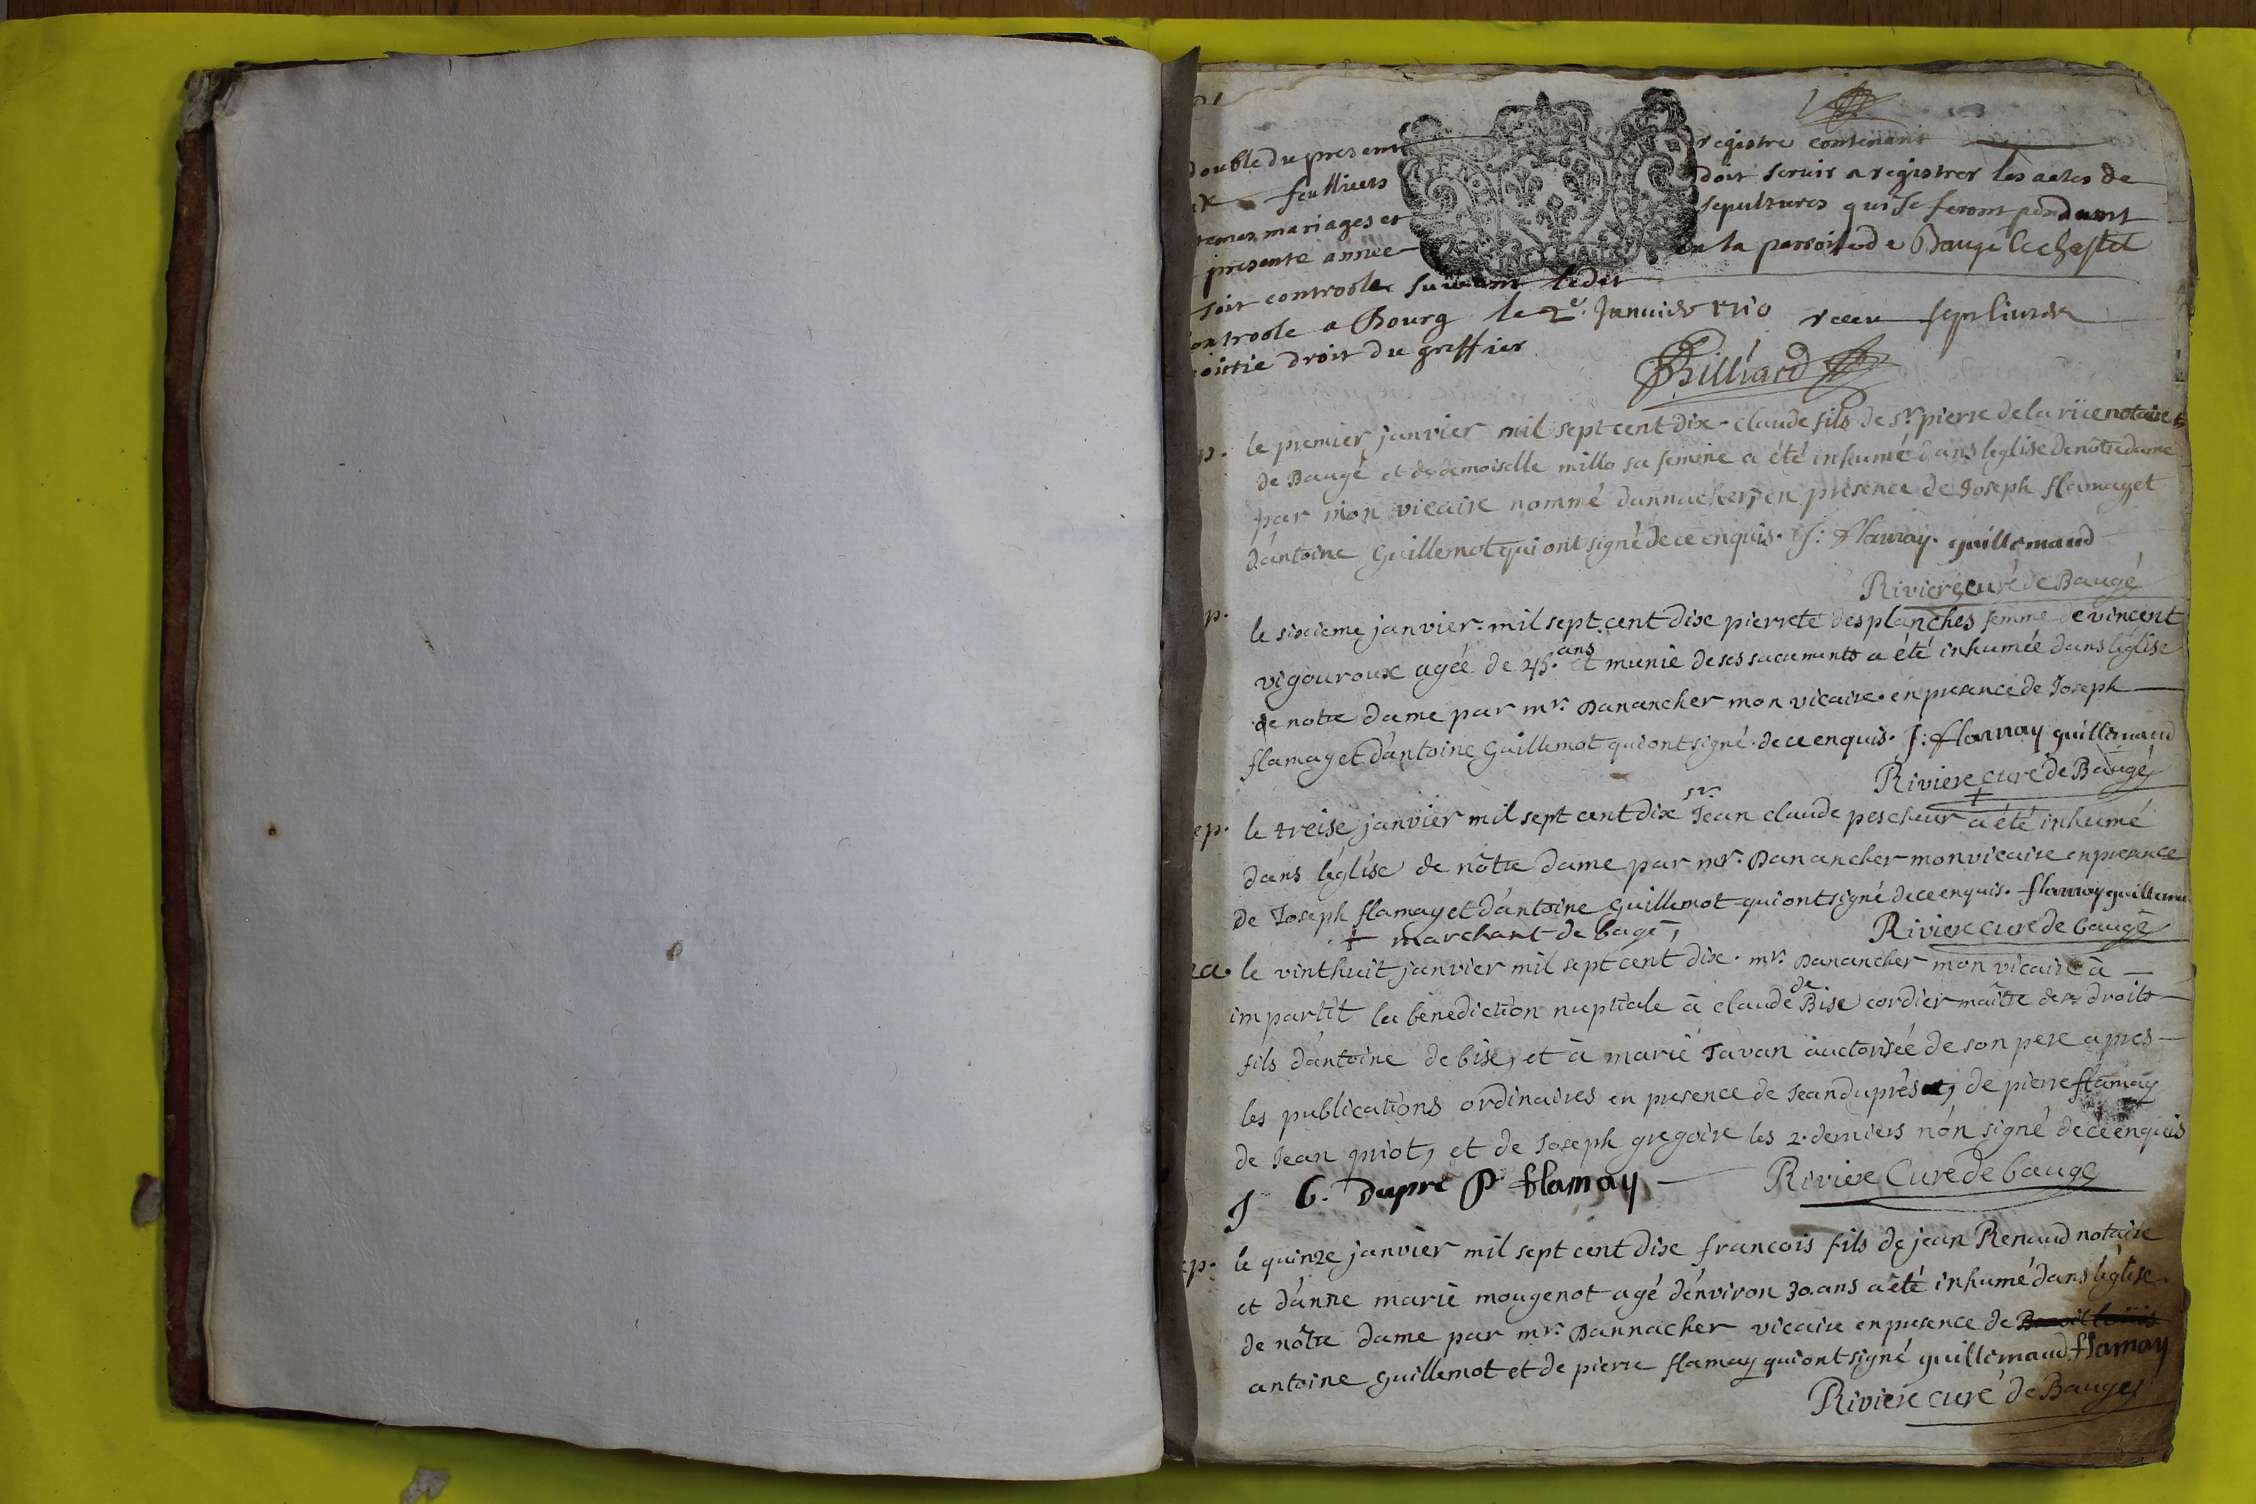 double du present registre contenant
feulliets doit servir a registrer les actes de
mariages et sepultures qui se feront pendant
presente année en la parroisse de Baugé le chastel
soit controole suivant ledit
controole a Bourg le 2e. Janvier 1710 receu sept livres
moitié droit du greffier
Billiard
p. le premier janvier mil sept cent dix. claude fils de sr. pierre de la rüe notaire
de Baugé et de demoiselle millo sa femme a été inhumé dans leglise de nôtre dame
par mon vicaire nommé dannacher, en presence de Joseph flamay et
d'antoine Guillemot qui ont signé de ce enquis. J: flamay. guillemaud
Riviere curé de Baugé
p. le sixieme janvier. mil sept cent dix pierrete desplanches femme de vincent
vigouroux agée de 45. ans et munie de ses sacements a été inhumée dans l'église
de notre dame par mr. Danancher mon vicaire. en presence de Joseph
flamay et d'antoine Guillemot qui ont signé. de ce enquis. J: flamay guillemaud
Riviere curé de Baugé
ep. le treise janvier mil sept cent dix sr. Jean claude pescheur + a été inhumé
dans l'église de nôtre dame par mr. Danancher mon vicaire en presence
de Joseph flamay et d'antoine Guillemot qui ont signé de ce enquis. flamay guillemau
+ marchant de bagé, Riviere curé de baugé
a. le vinthuit janvier mil sept cent dix. mr. Danancher mon vicaire à
impartit la benediction nuptiale à claude de Bise cordier maître de ses droits
fils d'antoine de bise, et à marie Tavan auctorisée de son pere apres
les publications ordinaires en presence de Jean duprés, de pierre flamay
de Jean priot, et de Joseph gregoire les 2. derniers nón signé de ce enquis
J b. Dupré P flamay Riviere Curé de baugé
ep. le quinze janvier mil sept cent dix francois fils de jean Renaud notaire
et d'anne marie mougenot agé d'environ 30. ans a été inhumé dans l'église
de nôtre dame par mr. Dannacher vicaire en presence de
antoine Guillemot et de pierre flamay qui ont signé guillemaud flamay
Riviere curé de Baugé